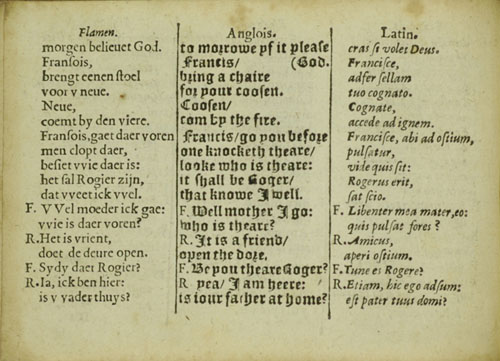 Flamen.
morgen believet God.
Fransois,
brengt eenen stoel
voor v neue.
Neue,
coemt by den viere.
Fransois, gaet daer voren
men clopt daer,
besiet vvie daer is:
het sal Rogier zijn,
dat vveet ick vvel.
F. VVel moeder ick gae:
vvie is daer voren?
R. Het is vrient,
doet de deure open.
F. Sydy daer Rogier?
R. Ia, ick ben hier:
is v vader thuys?
Anglois.
to morrowe yf it please
Francis/ (God.
bring a chaire
for your coosen.
Coosen/
com by the fire.
Francis/ go you before
one knocketh theare/
looke who is theare:
it shall be Goger/
that knowe I well.
F. Well mother I go:
who is theare?
R. It is a friend/
open the dore.
F. Be you theare Goger?
R yea/ I am heere:
is iour father at home?
Latin.
cras si volet Deus.
Francisce,
adfer sellam
tuo cognato.
Cognate,
accede ad ignem.
Francisce, abi ad ostium,
pulsatur,
vide quis sit:
Rogerus erit,
sat scio.
F. Libenter mea mater, eo:
quis pulsat fores?
R. Amicus,
aperi ostium.
F. Tune es Rogere?
R. Etiam, hic ego adsum:
est pater tuus domi?